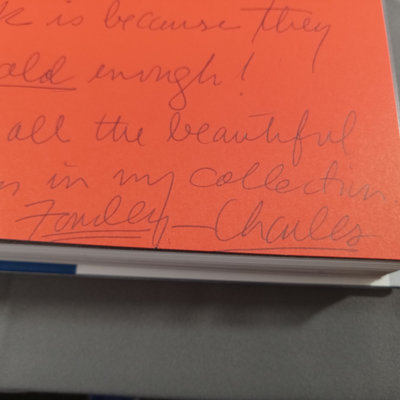 k is because they
old enough!
all the beautiful
in my collection
Fondly - Charles